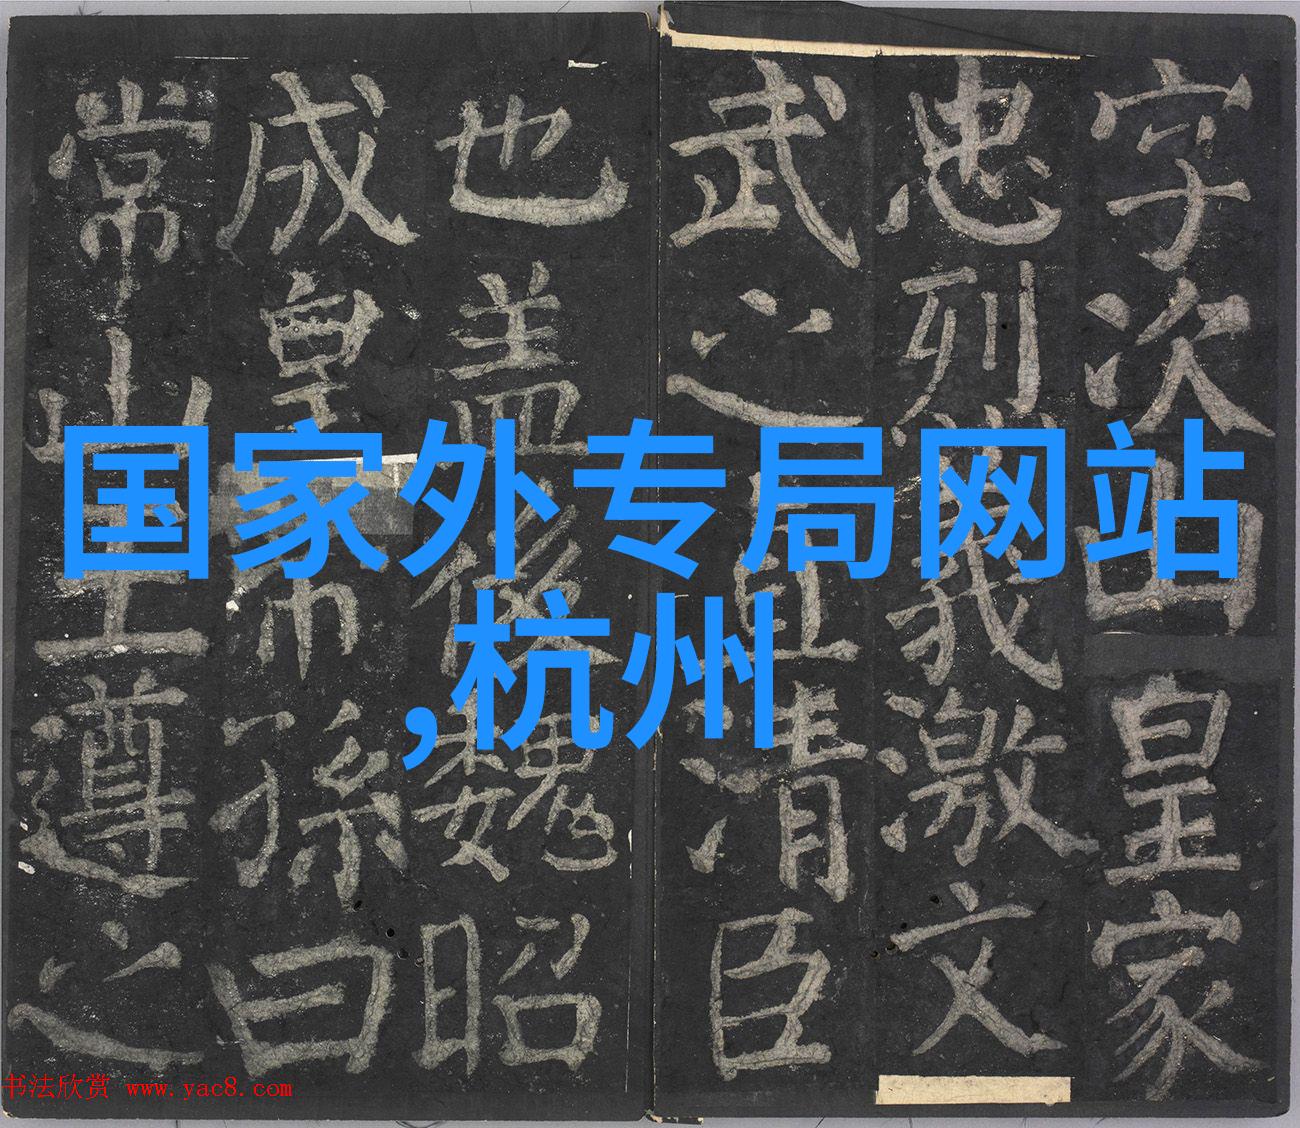 字次山皇家
忠烈義激文
武之直清臣
也盖後魏昭
成皇帝孫曰
常山王遵之
国家外专局网站
,杭州
书法欣赏 www.yac8.com